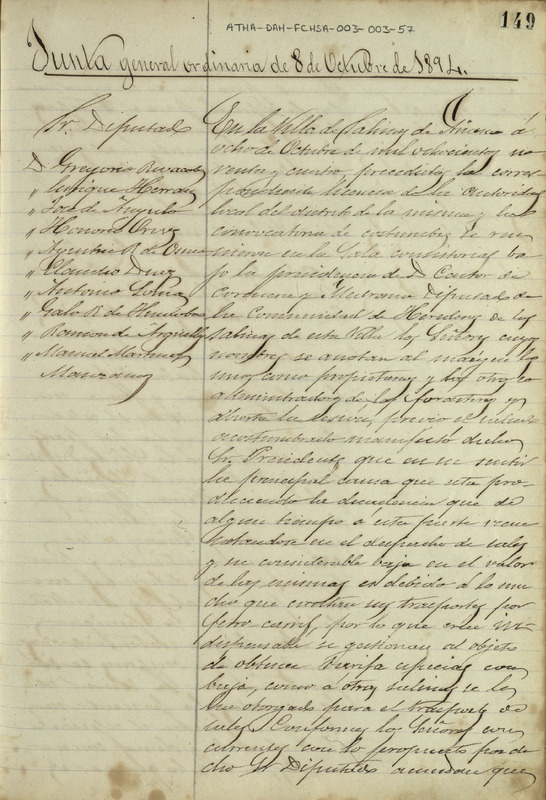 149
ATHA-DAH-FCHSA-003-003-57
Junta general ordinaria de 8 de Octubre de 1894.
Sr. Diputado
D Gregorio
" Enrique Herran
" José de Angulo
" Honorio
" Agustin R de
" Claudio
" Antonio
" Galo R de
" Ramon de Arguelles
" Manuel Martinez
Manzanos
En la Villa de Salinas de Añana á
ocho de Octubre de mil ochocientos no
venta y cuatro, precedida la corres
pondiente licencia de la autoridad
local del distrito de la misma y la
convocatoria de costumbre se reu
nieron en la Sala consistorial ba
jo la presidencia de D Castor de
Corcuera y Diputado de
la Comunidad de Herederos de las
Salinas de esta Villa los Señores cuyos
nombres se anotan al margen los
unos como propietarios y los otros co
administradores de los forasteros y
abierta la sesion, previo el
acostumbrado manifestó dicho
Sr. Presidente que en su sentir
la principal causa que esta pro
duciendo la decadencia que de
algun tiempo á esta parte viene
notandose en el despacho de sales
y su considerable baja en el valor
de las mismas es debido á lo mu
cho que cuestan los trasportes por
ferro carril, por lo que cree in-
dispensable se gestionen al objeto
de obtener tarifa especial con
baja, como á otras salinas se les
ha otorgado para el trasporte de
sales. Conformes los Señores con
currentes con lo propuesto por di
cho Sr Diputado acuerdan que